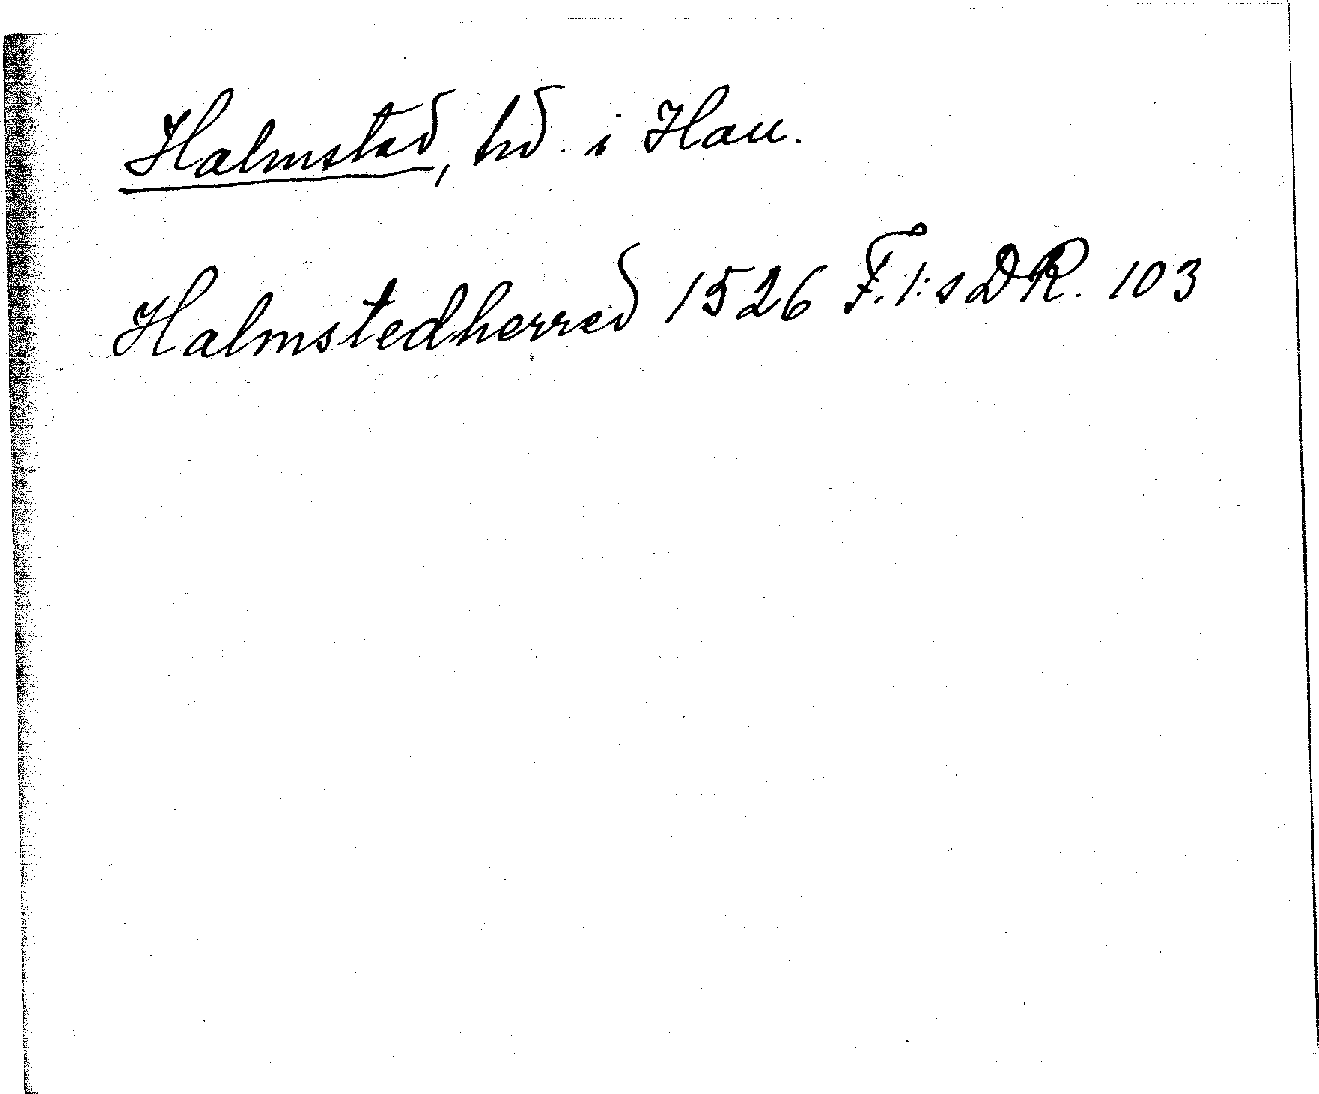 Halmstad, hd. i Hall.
Halmstedherred 1526 F. 1:s DR. 103